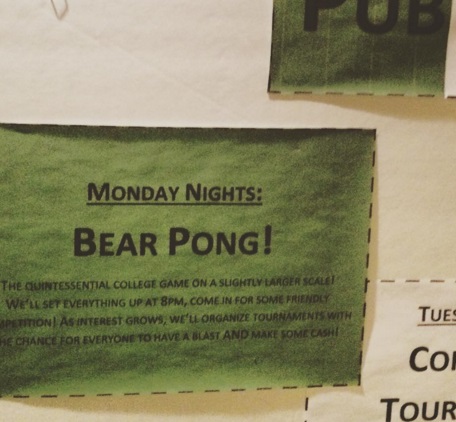 PUB
MONDAY NIGHTS:
BEAR PONG!
THE QUINTESSENTIAL COLLEGE GAME ON A SLIGHTLY LARGER SCALE!
WE'LL SET EVERYTHING UP AT 8PM, COME IN FOR SOME FRIENDLY
MPETITION! AS INTEREST GROWS, WE'LL ORGANIZE TOURNAMENTS WITH
HE CHANCE FOR EVERYONE TO HAVE A BLAST AND MAKE SOME CASH!
TUES
TOUR